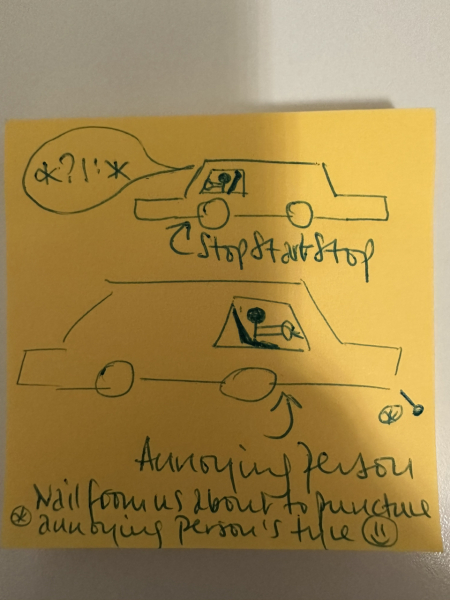 *?!:*
StopStartStop
*
Annoying Person
* Nail from us about to puncture
annoying person's tyre